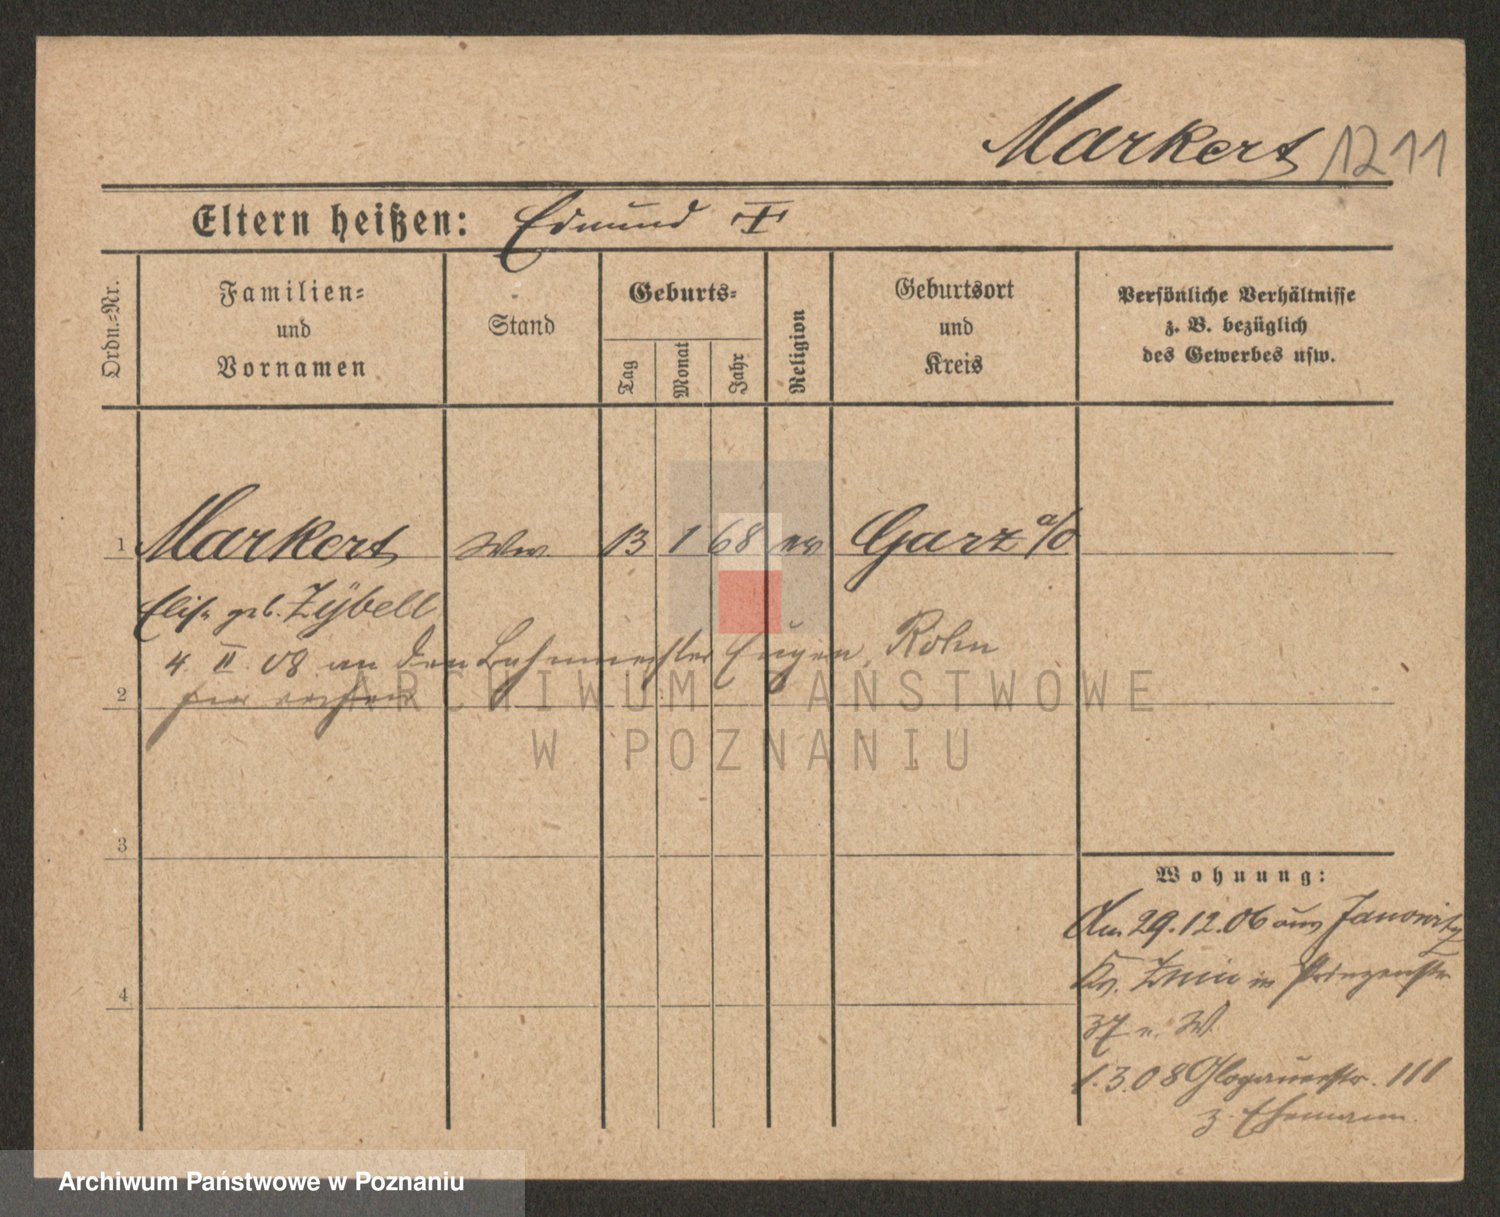 Markert 1211
Eltern heißen: Edmund †
Ordn.-Nr.
Familien-
und
Vornamen
Stand
Geburts-
Tag
Monat
Jahr
Religion
Geburtsort
und
Kreis
Persönliche Verhältnisse
z. B. bezüglich
des Gewerbes usw.
1 Markert Ww. 13 1 68 ev Garz a/O
Elise geb. Zybell
4. II. 08 an den Bahnmeister Eugen Rohn
2
3
4
Wohnung:
Am 29.12.06 aus Janowitz
Kr. Znin in Prinzenstr
37 n. W.
1.3.08 Glogauerstr. 111
z. Ehemann.
ARCHIWUM PAŃSTWOWE
W POZNANIU
Archiwum Państwowe w Poznaniu